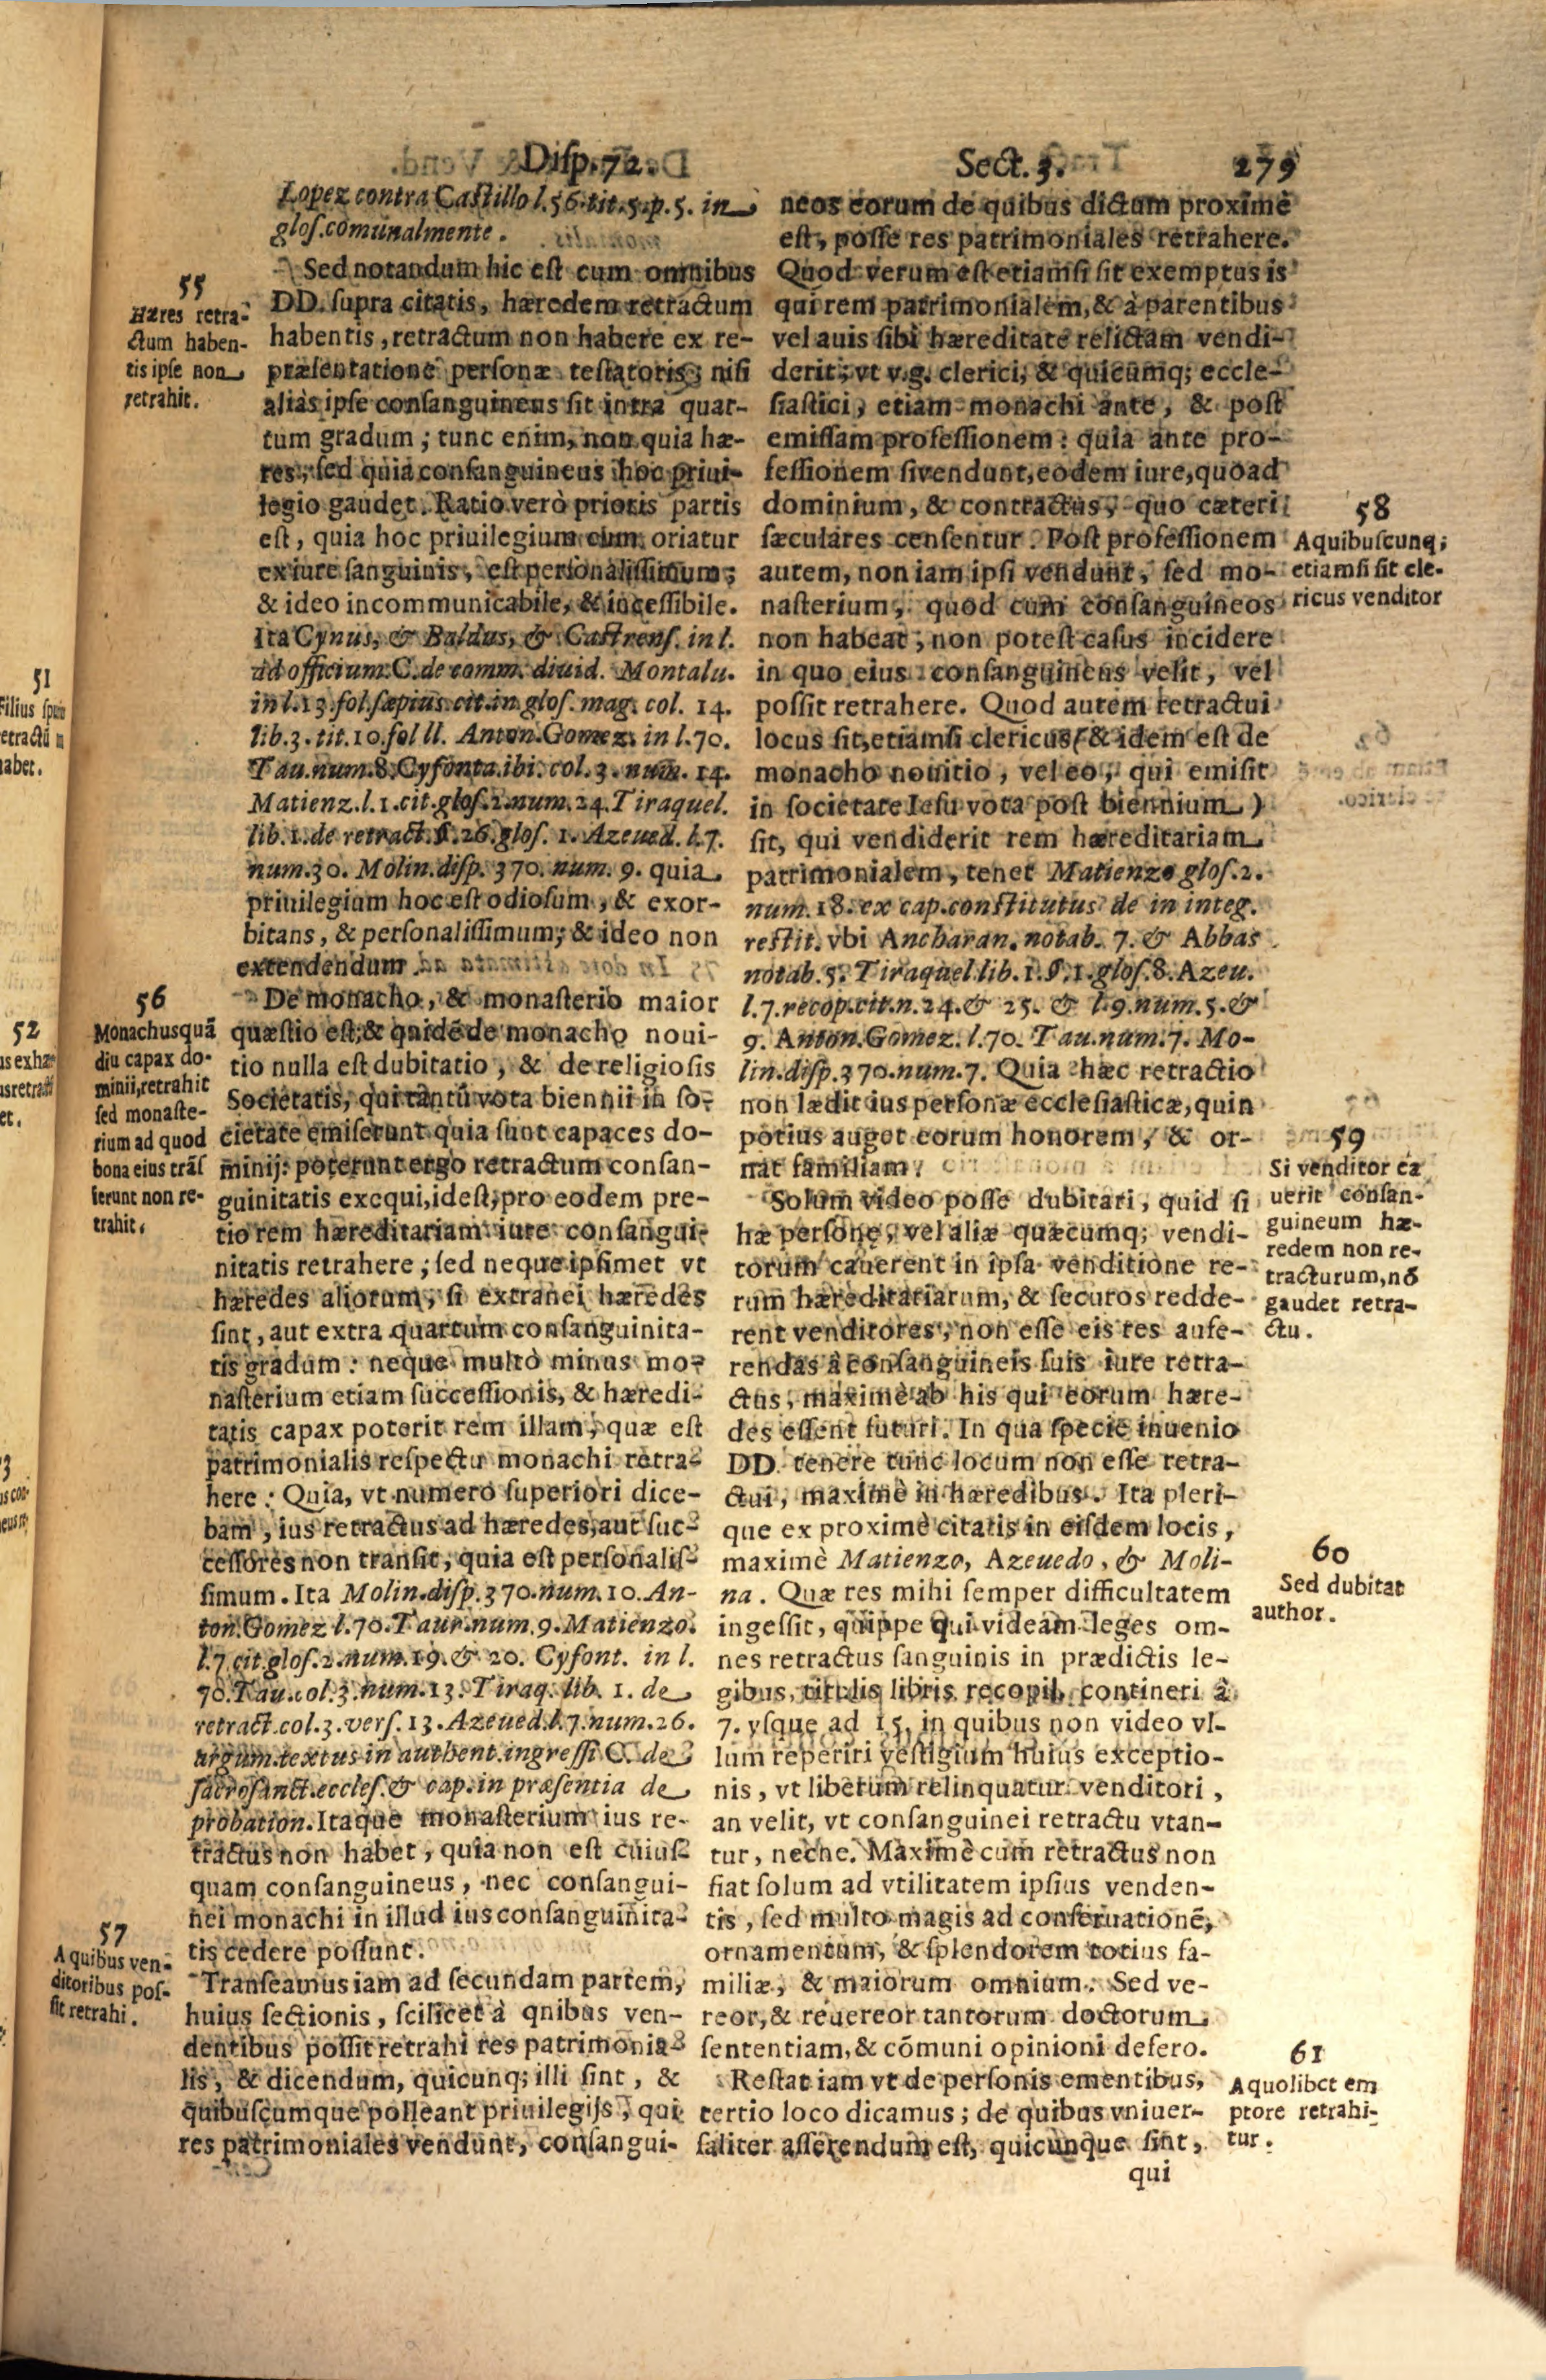 Disp. 72.
Sect. 3.
279
Lopez contra Castillo l. 56. tit. 5. p. 5. in
glos. comunalmente.
55
Hæres retra-
ctum haben-
tis ipse non
retrahit.
Sed notandum hic est cum omnibus
DD. supra citatis, hæredem retractum
habentis, retractum non habere ex re-
præsentatione personæ testatoris; nisi
aliàs ipse consanguineus sit intra quar-
tum gradum; tunc enim, non quia hæ-
res, sed quia consanguineus hoc priui-
legio gaudet. Ratio verò prioris partis
est, quia hoc priuilegium cum oriatur
ex iure sanguinis, est personalissimum;
& ideo incommunicabile, & incessibile.
Ita Cynus, & Baldus, & Castrens. in l.
ad officium. C. de comm. diuid. Montalu.
in l. 13. fol. sæpius cit. in glos. mag. col. 14.
lib. 3. tit. 10. fol ll. Anton. Gomez. in l. 70.
Tau. num. 8. Cyfonta. ibi. col. 3. num. 14.
Matienz. l. 1. cit. glos. 2. num. 24. Tiraquel.
lib. 1. de retract. §. 26. glos. 1. Azeued. l. 7.
num. 30. Molin. disp. 370. num. 9. quia
priuilegium hoc est odiosum, & exor-
bitans, & personalissimum; & ideo non
extendendum.
56
Monachus quã
diu capax do-
minii, retrahit
sed monaste-
rium ad quod
bona eius trãs
ierunt non re-
trahit.
De monacho, & monasterio maior
quæstio est; & quidẽ de monacho noui-
tio nulla est dubitatio, & de religiosis
Societatis, qui tantũ vota biennii in so-
cietate emiserunt quia sunt capaces do-
minij: poterunt ergo retractum consan-
guinitatis exequi, idest, pro eodem pre-
tio rem hæreditariam iure consangui-
nitatis retrahere; sed neque ipsimet vt
hæredes aliorum, si extranei hæredes
sint, aut extra quartum consanguinita-
tis gradum: neque multò minus mo-
nasterium etiam successionis, & hæredi-
tatis capax poterit rem illam, quæ est
patrimonialis respectu monachi retra-
here: Quia, vt numero superiori dice-
bam, ius retractus ad hæredes, aut suc-
cessores non transit, quia est personalis-
simum. Ita Molin. disp. 370. num. 10. An-
ton. Gomez l. 70. Taur. num. 9. Matienzo.
l. 7. cit. glos. 2. num. 19. & 20. Cyfont. in l.
70. Tau. col. 3. num. 13. Tiraq. lib. 1. de
retract. col. 3. vers. 13. Azeued. l. 7. num. 26.
argum. textus in authent. ingressi C. de
sacrosanct. eccles. & cap. in præsentia de
probation. Itaque monasterium ius re-
tractus non habet, quia non est cuius-
quam consanguineus, nec consangui-
nei monachi in illud ius consanguinita-
tis cedere possunt.
57
A quibus ven-
ditoribus pos-
sit retrahi.
Transeamus iam ad secundam partem,
huius sectionis, scilicet à qnibus ven-
dentibus possit retrahi res patrimonia-
lis, & dicendum, quicunq; illi sint, &
quibuscumque polleant priuilegijs, qui
res patrimoniales vendunt, consangui-
neos eorum de quibus dictum proximè
est, posse res patrimoniales retrahere.
Quod verum est etiamsi sit exemptus is
qui rem patrimonialem, & à parentibus
vel auis sibi hæreditate relictam vendi-
derit; vt v.g. clerici, & quicumq; eccle-
siastici, etiam monachi ante, & post
emissam professionem: quia ante pro-
fessionem si vendunt, eodem iure, quoad
dominium, & contractus, quo cæteri
sæculares censentur. Post professionem
autem, non iam ipsi vendunt, sed mo-
nasterium, quod cum consanguineos
non habeat, non potest casus incidere
in quo eius consanguineus velit, vel
possit retrahere. Quod autem retractui
locus sit, etiamsi clericus (& idem est de
monacho nouitio, vel eo, qui emisit
in societate Iesu vota post biennium)
sit, qui vendiderit rem hæreditariam
patrimonialem, tenet Matienzo glos. 2.
num. 18. ex cap. constitutus de in integ.
restit. vbi Ancharan. notab. 7. & Abbas
notab. 5. Tiraquel lib. 1. §. 1. glos. 8. Azeu.
l. 7. recop. cit. n. 24. & 25. & l. 9. num. 5. &
9. Anton. Gomez. l. 70. Tau. num. 7. Mo-
lin. disp. 370. num. 7. Quia hæc retractio
non lædit ius personæ ecclesiasticæ, quin
potius auget eorum honorem, & or-
nat familiam.
58
A quibuscunq;
etiamsi sit cle-
ricus venditor
59
Si venditor ca
uerit consan-
guineum hæ-
redem non re-
tracturum, nõ
gaudet retra-
ctu.
Solum video posse dubitari, quid si
hæ personę, vel aliæ quæcumq; vendi-
torum cauerent in ipsa venditione re-
rum hæreditariarum, & securos redde-
rent venditores, non esse eis res aufe-
rendas à consanguineis suis iure retra-
ctus, maximè ab his qui eorum hære-
des essent futuri. In qua specie inuenio
DD. tenere tunc locum non esse retra-
ctui, maximè in hæredibus. Ita pleri-
que ex proximè citatis in eisdem locis,
maximè Matienzo, Azeuedo, & Moli-
na. Quæ res mihi semper difficultatem
ingessit, quippe qui videam leges om-
nes retractus sanguinis in prædictis le-
gibus, titulis libris recopil. contineri à
7. vsque ad 15. in quibus non video vl-
lum reperiri vestigium huius exceptio-
nis, vt liberum relinquatur venditori,
an velit, vt consanguinei retractu vtan-
tur, necne. Maximè cum retractus non
fiat solum ad vtilitatem ipsius venden-
tis, sed multo magis ad conseruationẽ,
ornamentum, & splendorem totius fa-
miliæ, & maiorum omnium. Sed ve-
reor, & reuereor tantorum doctorum
sententiam, & cõmuni opinioni defero.
60
Sed dubitat
author.
Restat iam vt de personis ementibus,
tertio loco dicamus; de quibus vniuer-
saliter asserendum est, quicunque sint,
qui
61
A quolibet em
ptore retrahi-
tur.
51
Filius
52